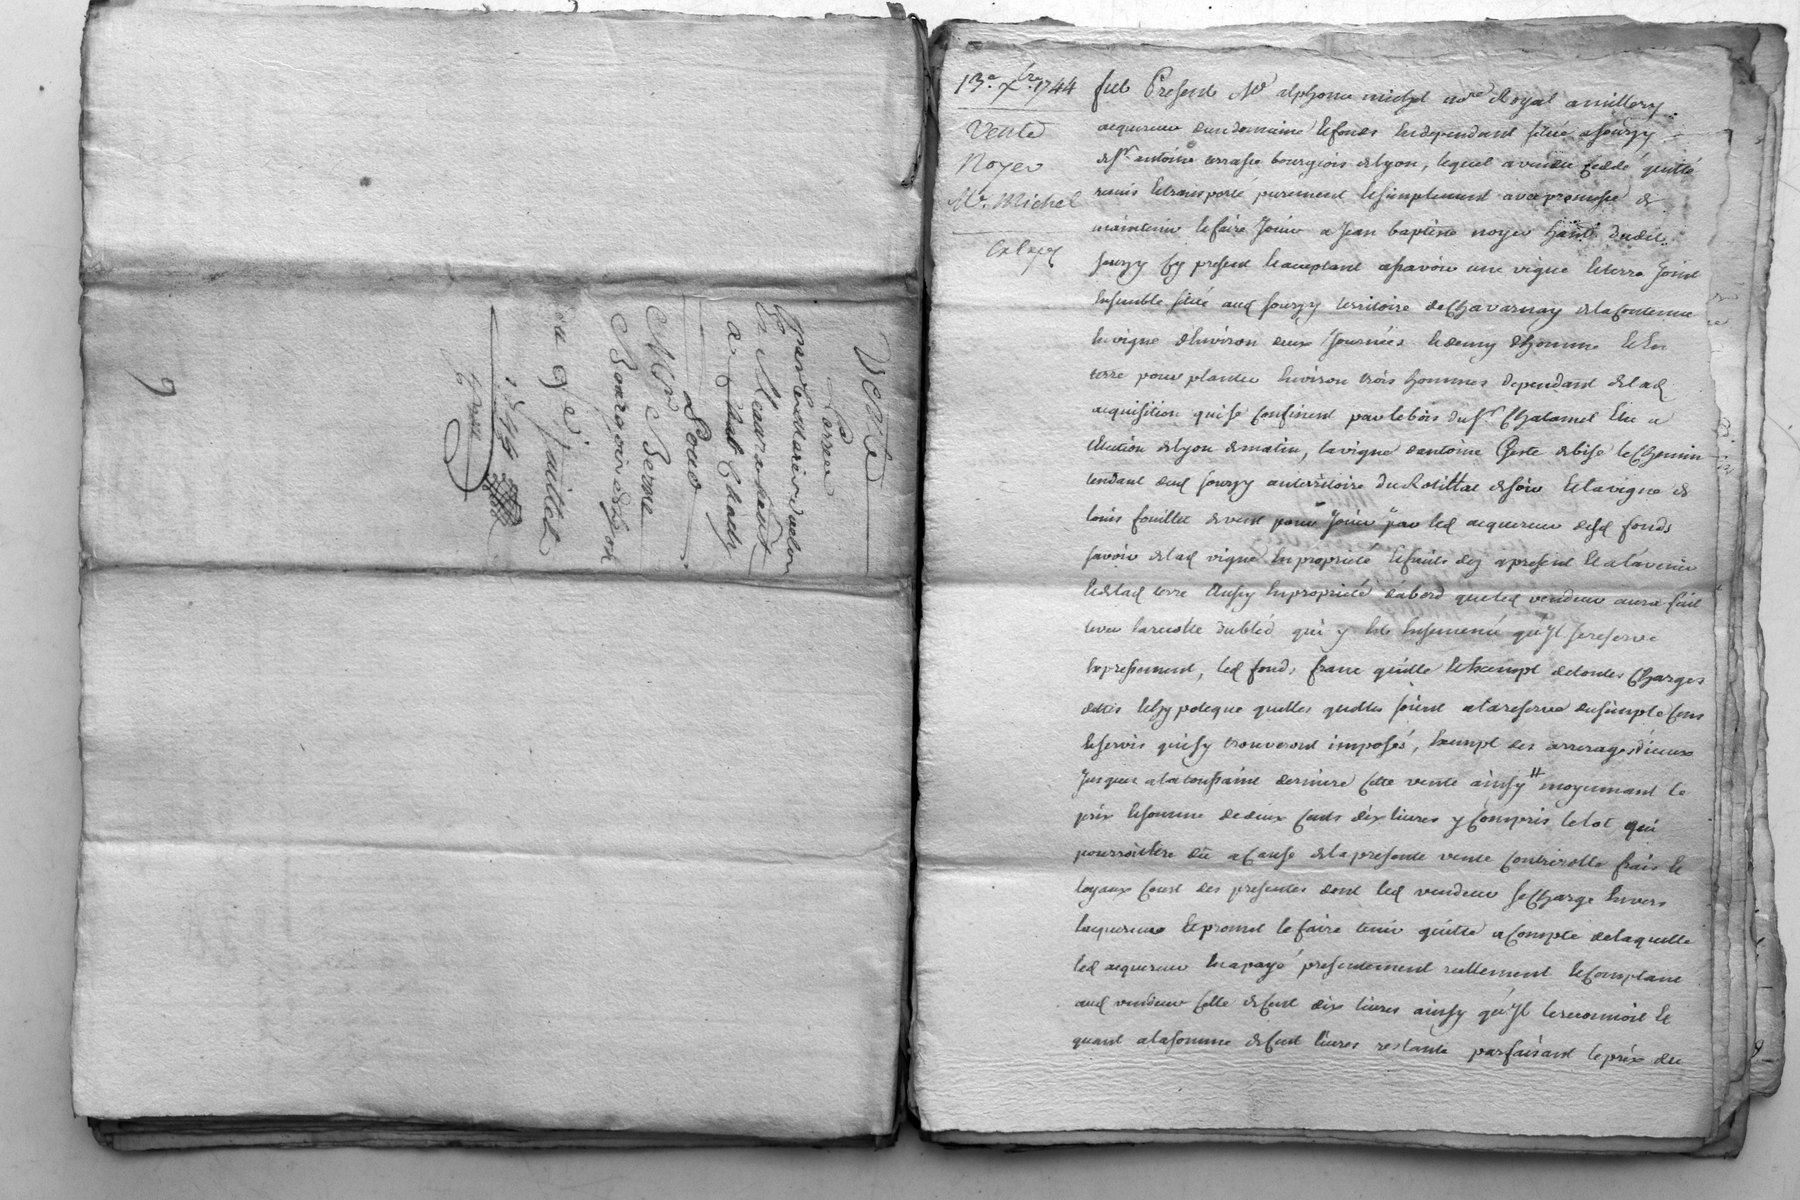 Vente
Noyer
par
en
a
Louis
Mr Berne
Bourgeois de Lyon
du 9e Juillet
1744
9
13e Xbre 1744
Vente
Noyer
Mr. Michel
fut Present Me alphonse michel nore Royal a millery
acquereur dun domaine et fonds en dependant situé a Sourzy
de Sr antoine terrasse bourgeois de lyon, lequel a vendu ceddé quitté
remis et transporté purement et simplement avec promesse de
maintenir et faire Jouir a Jean baptiste noyer hant dudit
Sourzy cy present et acceptant assavoir une vigne et terre Joint
ensemble situé aud Sourzy territoire de Chavarnay de la contenue
en vigne d'environ deux Journées et demy dhomme et en
terre pour planter environ trois hommes dependant de lad
acquisition qui se confinent par le bois du Sr Chalamel Elu a
election de lyon de matin, la vigne dantoine de bise le Chemin
tendant dud Sourzy au territoire du de soir et la vigne de
louis fouillet de vent pour Jouir par led acquereur desd fonds
savoir de lad vigne en proprieté et fruits des a present et a lavenir
et de lad terre Aussy en proprieté dabord que led vendeur aura fait
lever la recolte du bled qui y est ensemencé qu'Il se reserve
expressement, led fonds franc quitte et exempt de toutes Charges
dettes et hypoteque quelles quelles soient a la reserve du simple cens
et servis qui sy trouveront imposés, exempt des arrerages d'iceux
Jusques a la toussaint derniere cette vente ainsy moyennant le
prix et somme de deux cents dix livres y compris le lot qui
pourroit etre dû a cause de la presente vente controlle frais et
loyaux coust des presentes dont led vendeur se Charge envers
lacquereur et promet le faire tenir quitte a compte de laquelle
led acquereur en a payé presentement reellement et comptant
aud vendeur celle de cent dix livres ainsy qu'Il le reconnoit et
quant a la somme de cent livres restante parfaisant le prix de